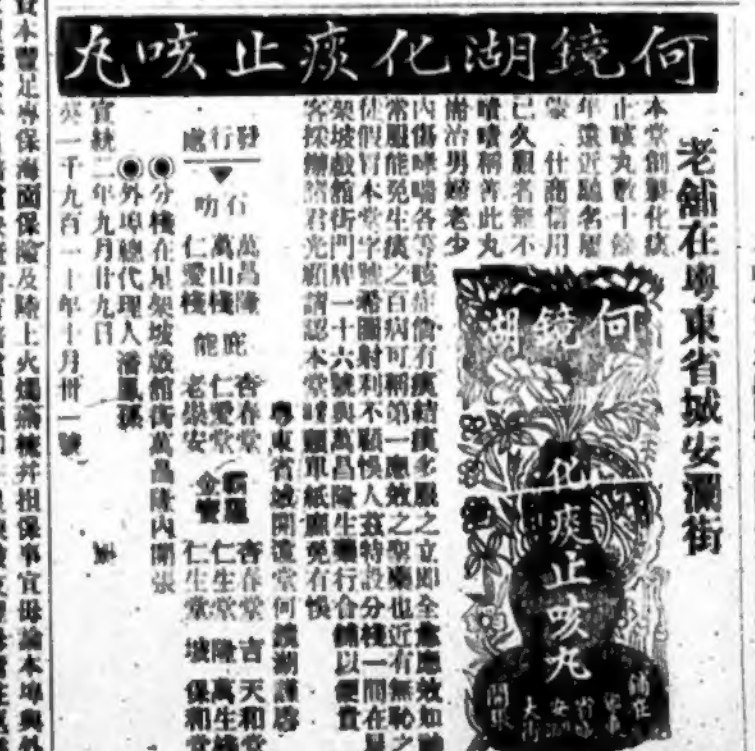 何鏡湖化痰止咳丸
老舖在粵東省城安瀾街
何鏡湖
化痰止咳丸
舖在
省城
安瀾
大街
開張
本堂創製化痰
止咳丸數十餘
年遠近馳名屢
蒙 仕商信用
已久服者無不
嘖嘖稱善此丸
治男婦老少
內傷哮喘各等咳症倘有痰結痰多服之立即全愈應效如
常服能免生痰之百病可稱第一應效之聖藥也近有無恥之
徒假冒本堂字號希圖射利不顧悞人茲特設分棧一間在星
架坡戲館街門牌一十六號與萬昌隆生藥行合舖以便貴
客採辦諸君光顧請認本堂單紙庶免有悞
粵東省城開遠堂何鏡湖謹啓
發行處
石叻
萬昌隆
萬山棧
仁愛棧
庇能
杏春堂
仁愛堂
老崇安
霹靂
金寶
杏春堂
仁生堂
仁生堂
吉隆坡
天和堂
萬生棧
保和堂
分棧在星架坡戲館街萬昌隆內開張
外埠總代理人潘鳳
宣統二年九月廿九日
英一千九百一十年十月卅一號
資本豐足專保海面保險及陸上火燭燕梳并担保事宜毋論本埠與外